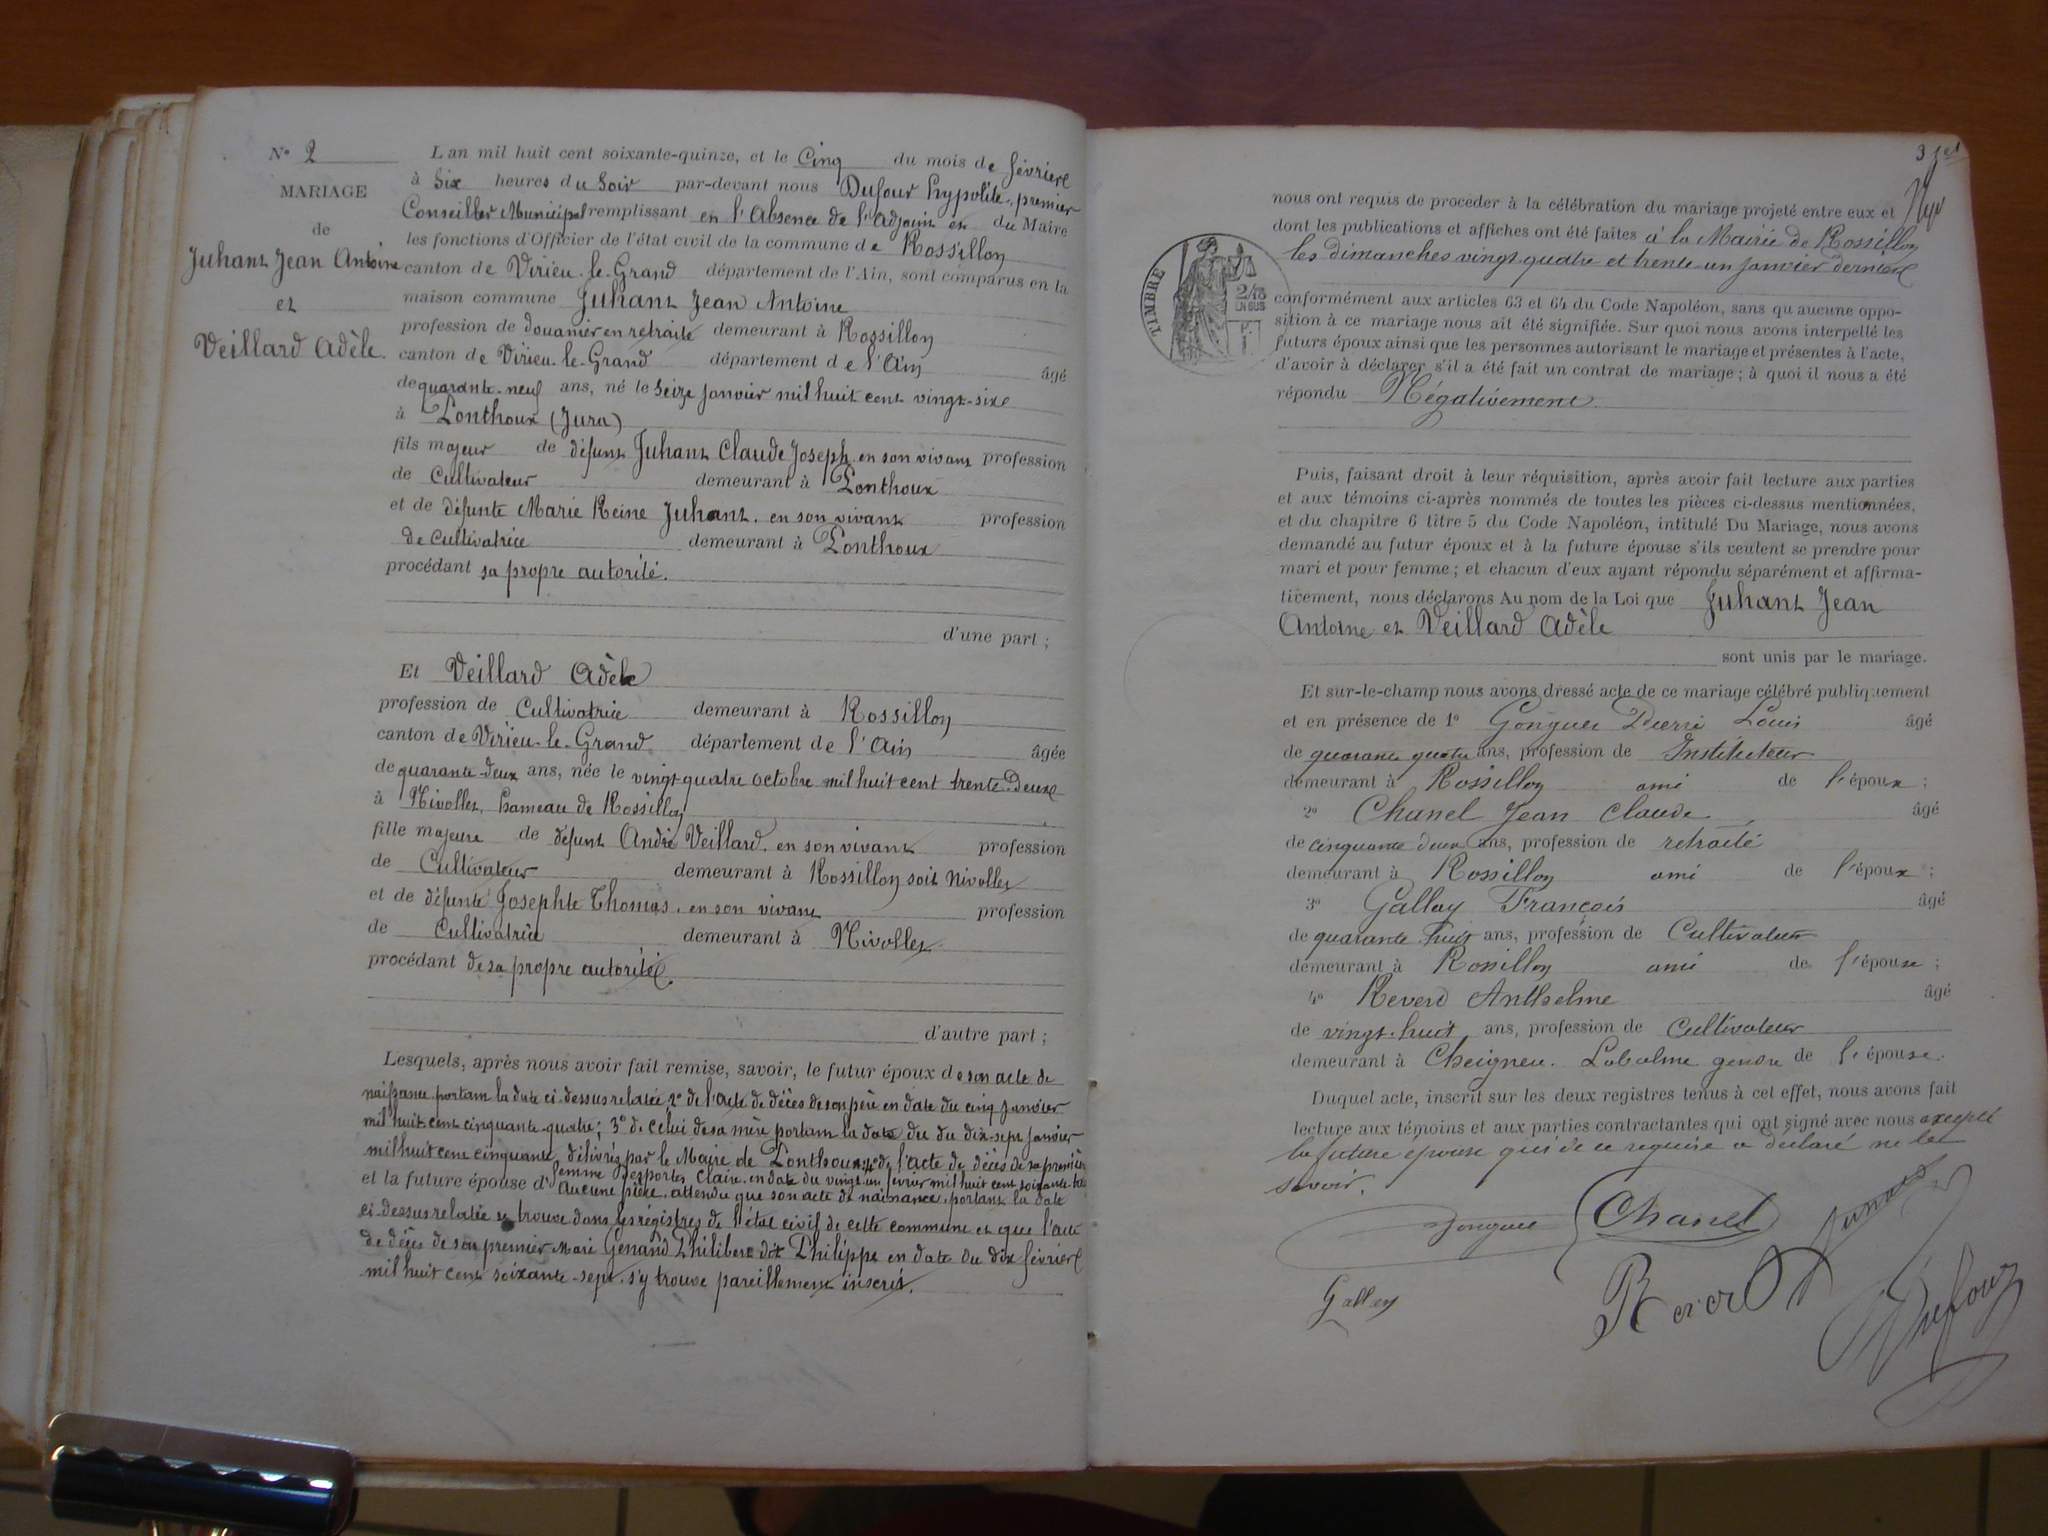 N° 2
MARIAGE
de
Juhant Jean Antoine
et
Veillard Adèle.
L an mil huit cent soixante-quinze, et le Cinq du mois de février
à Six heures du Soir par-devant nous Dufour hypolite, premier
Conseiller Municipal remplissant en l'Absence de l'Adjoint et du Maire
les fonctions d'Officier de l'état civil de la commune de Rossillon
canton de Virieu-le-Grand département de l'Ain, sont comparus en la
maison commune Juhant Jean Antoine
profession de douanier en retraite demeurant à Rossillon
canton de Virieu-le-Grand département de l'Ain âgé
de quarante-neuf ans, né le Seize janvier mil huit cent vingt-six
à Lonthoux (Jura)
fils majeur de défunt Juhant Claude Joseph en son vivant profession
de Cultivateur demeurant à Lonthoux
et de défunte Marie Reine Juhant. en son vivant profession
de cultivatrice demeurant à Lonthoux
procédant sa propre autorité.
d'une part ;
Et Veillard Adèle
profession de Cultivatrice demeurant à Rossillon
canton de Virieu-le-Grand département de l'Ain âgée
de quarante-deux ans, née le vingt-quatre octobre mil huit cent trente-deux
à Nivollet, hameau de Rossillon
fille majeure de défunt André Veillard. en son vivant profession
de Cultivateur demeurant à Rossillon soit Nivollet
et de défunte Josephte Thomas. en son vivant profession
de Cultivatrice demeurant à Nivollet
procédant de sa propre autorité.
d'autre part ;
Lesquels, après nous avoir fait remise, savoir, le futur époux de son acte de
naissance portant la date ci-dessus relatée 2° de l'acte de décès de son père en date du cinq janvier
mil huit cent cinquante-quatre; 3° de celui de sa mère portant la date du du dix-sept janvier
mil huit cent cinquante, délivrés par le Maire de Lonthoux; 4° de l'acte de décès de sa première
femme Desportes Claire. en date du vingt-un février mil huit cent soixante
et la future épouse d' Aucune pièce. attendu que son acte de naissance. portant la date
ci-dessus relatée se trouve dans les régistres de l'état civil de cette commune et que l'acte
de décès de son premier Mari Genand Philibert dit Philippe en date du dix février
mil huit cent soixante-sept. s'y trouve pareillement inscrit.
3
nous ont requis de procéder à la célébration du mariage projeté entre eux et
dont les publications et affiches ont été faites à la Mairie de Rossillon
les dimanches vingt-quatre et trente-un janvier dernier
TIMBRE
conformément aux articles 63 et 64 du Code Napoléon, sans qu aucune oppo-
sition à ce mariage nous ait été signifiée. Sur quoi nous avons interpellé les
futurs époux ainsi que les personnes autorisant le mariage et présentes à l'acte,
d'avoir à déclarer s'il a été fait un contrat de mariage ; à quoi il nous a été
répondu Négativement
Puis, faisant droit à leur réquisition, après avoir fait lecture aux parties
et aux témoins ci-après nommés de toutes les pièces ci-dessus mentionnées,
et du chapitre 6 titre 5 du Code Napoléon, intitulé Du Mariage, nous avons
demandé au futur époux et à la future épouse s'ils veulent se prendre pour
mari et pour femme ; et chacun d'eux ayant répondu séparément et affirma-
tivement, nous déclarons Au nom de la Loi que Juhant Jean
Antoine et Veillard Adèle
sont unis par le mariage.
Et sur-le-champ nous avons dressé acte de ce mariage célébré publiquement
et en présence de 1° Gonguet Pierre Louis âgé
de quarante quatre ans, profession de Instituteur
demeurant à Rossillon ami de l'époux ;
2° Chanel Jean Claude, âgé
de cinquante deux ans, profession de retraité
demeurant à Rossillon ami de l'époux ;
3° Gallay François âgé
de quarante-huit ans, profession de Cultivateur
demeurant à Rossillon ami de l'épouse ;
4° Reverd Anthelme âgé
de vingt-huit ans, profession de Cultivateur
demeurant à Cheignieu-Labalme gendre de l'épouse.
Duquel acte, inscrit sur les deux registres tenus à cet effet, nous avons fait
lecture aux témoins et aux parties contractantes qui ont signé avec nous excepté
la future épouse qui de ce requise a déclaré ne le
savoir.
Gonguet Chanel Juhant
Gallay Reverd Dufour